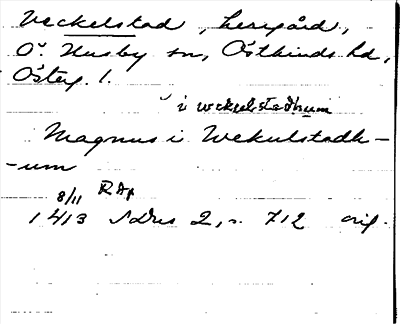 Veckelstad, herrgård,
Ö. Husby sn, Östkinds hd,
Österg. l.
i wekulstadhum
Magnus i Wekulstadh-
-um
8/11 RAp
1413 SDns 2, s. 712 orig.